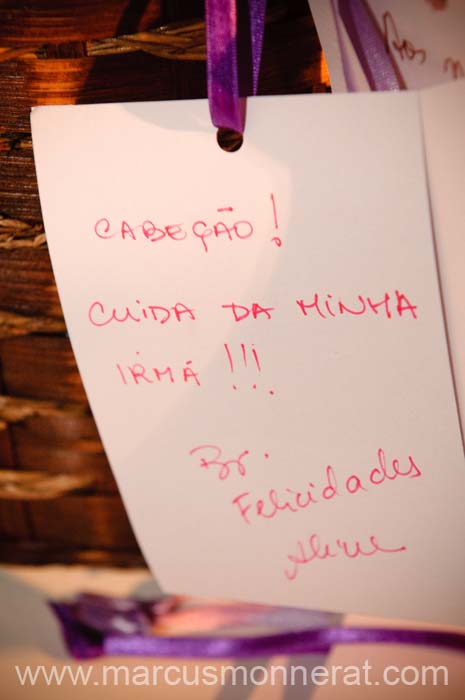 Aos
CABEÇÃO!
CUIDA DA MINHA
IRMÁ!!!
Bj.
Felicidades
Aline
www.marcusmonnerat.com